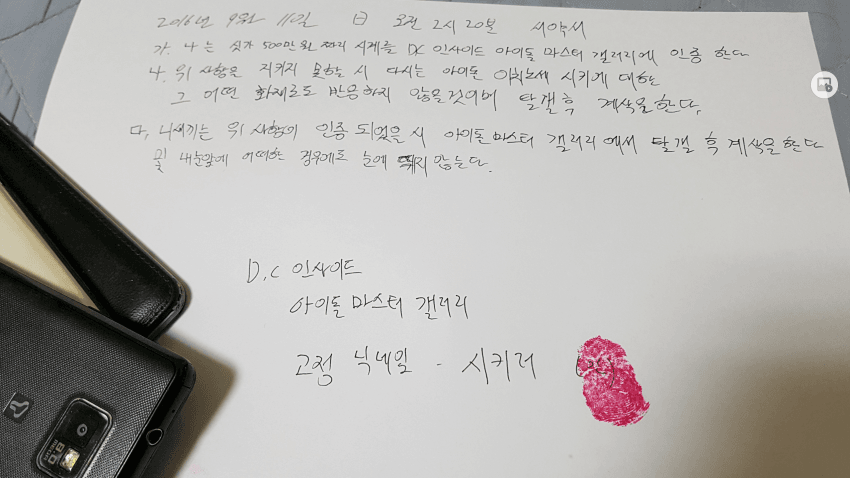 2016년 9월 11일 日 오전 2시 20분 서약서
가. 나는 싯가 500만원 짜리 시계를 DC 인사이드 아이돌 마스터 갤러리에 인증 한다
나. 위 사항을 지키지 못할 시 다시는 아이돌 이치노세 시키에 대한
그 어떤 화재로도 반응하지 않을것이며 탈갤 후 계삭을 한다.
다. 니새끼는 위 사항이 인증 되었을 시 아이돌마스터 갤러리에서 탈갤 후 계삭을 한다
및 내눈앞에 어떠한 경우에도 눈에 띄지 않는다.
D.C 인사이드
아이돌 마스터 갤러리
고정 닉네임 - 시키러